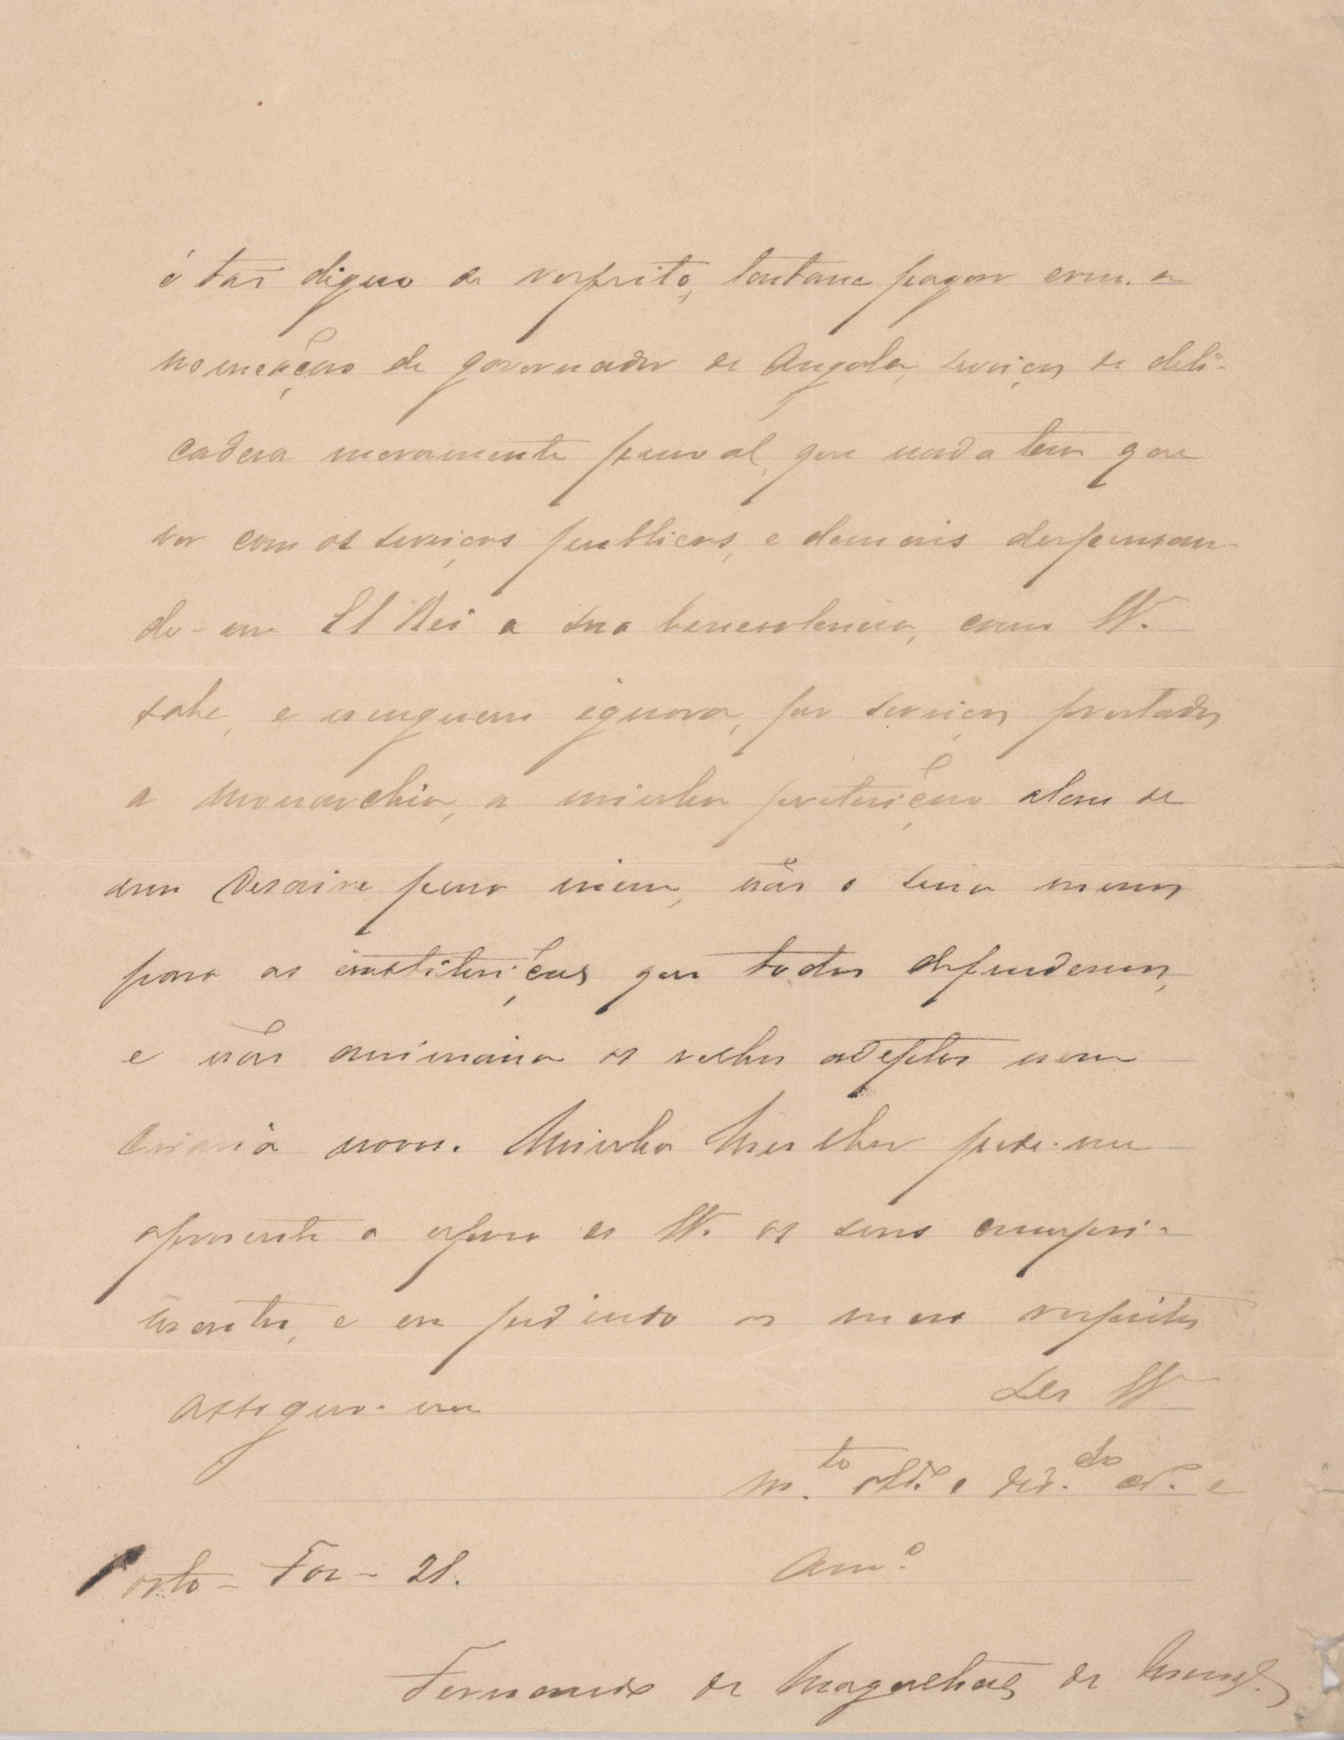 é tão digno de respeito, tentam pagar com a
nomeação de governador de Angola, serviços de deli-
cadeza meramente pessoal, que nada tem que
ver com os serviços publicos, e demais dispensan-
do-me El Rei a sua benevolencia, como V.
sabe, e ninguem ignora, por serviços prestados
a monarchia, a minha preterição alem de
um desaire para mim, não o seria menos
para as instituições que todos defendemos,
e não animaria os velhos adeptos nem
criaria novos. Minha Mulher pede-me
apresente a esposa de V. os seus cumpri-
mentos, e eu pedindo os meus respeitos
assigno-me De V.
m.to obd.o e ded.do cr.o e
Porto - Foz - 21. Am.o
Fernando de Magalhães de Menezes